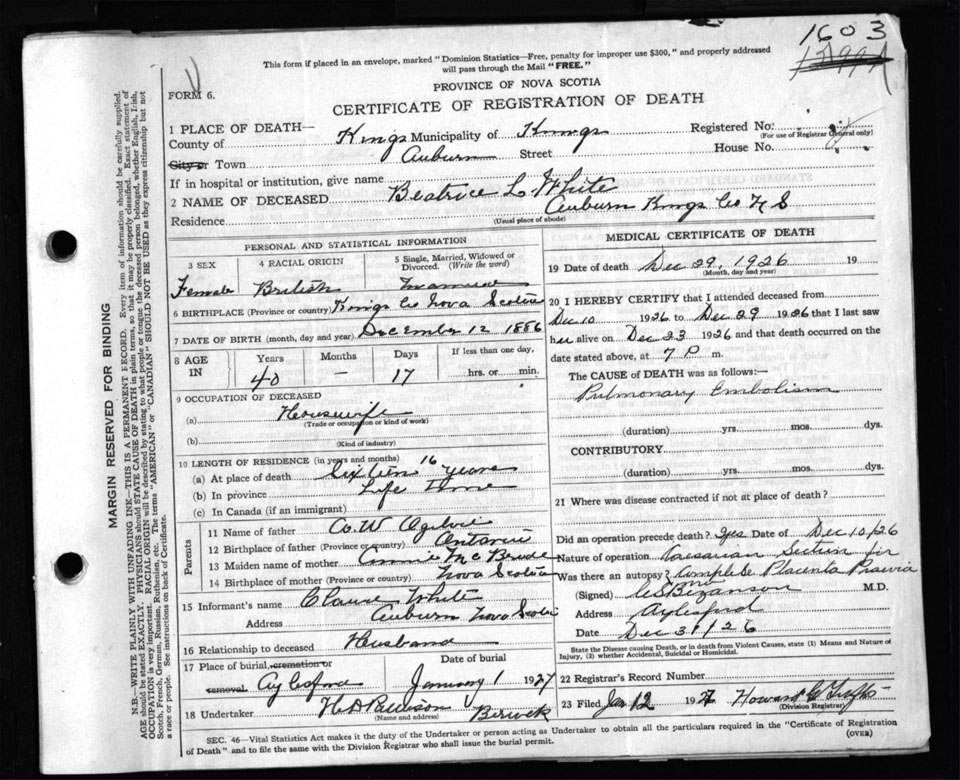 1603
This form if placed in an envelope, marked "Dominion Statistics—Free, penalty for improper use $300," and properly addressed
will pass through the Mail "FREE."
PROVINCE OF NOVA SCOTIA
FORM 6.
CERTIFICATE OF REGISTRATION OF DEATH
1 PLACE OF DEATH—
County of Kings Municipality of Kings Registered No.
(For use of Registrar General only)
City or Town Auburn Street House No.
If in hospital or institution, give name
2 NAME OF DECEASED Beatrice L White
Residence Auburn Kings Co N S
(Usual place of abode)
PERSONAL AND STATISTICAL INFORMATION
3 SEX 4 RACIAL ORIGIN 5 Single, Married, Widowed or Divorced. (Write the word)
Female British Married
6 BIRTHPLACE (Province or country) Kings Co Nova Scotia
7 DATE OF BIRTH (month, day and year) December 12 1886
8 AGE IN Years Months Days If less than one day,
40 — 17 hrs. or min.
9 OCCUPATION OF DECEASED
(a) Housewife
(Trade or occupation or kind of work)
(b)
(Kind of industry)
10 LENGTH OF RESIDENCE (in years and months)
(a) At place of death Sixteen 16 years
(b) In province Life Time
(c) In Canada (if an immigrant)
Parents
11 Name of father Co. W Ogilvie
12 Birthplace of father (Province or country) Ontario
13 Maiden name of mother Mc Bride
14 Birthplace of mother (Province or country) Nova Scotia
15 Informant's name White
Address Auburn Nova Scotia
16 Relationship to deceased Husband
17 Place of burial, cremation or removal Aylesford
Date of burial January 1 1927
18 Undertaker H D Berwick
(Name and address)
MEDICAL CERTIFICATE OF DEATH
19 Date of death Dec 29, 1926 19
(Month, day and year)
20 I HEREBY CERTIFY that I attended deceased from
Dec 10 1926 to Dec 29 1926 that I last saw
her alive on Dec 23 1926 and that death occurred on the
date stated above, at 7 P m.
The CAUSE of DEATH was as follows:—
Pulmonary Embolism
(duration) yrs. mos. dys.
CONTRIBUTORY
(duration) yrs. mos. dys.
21 Where was disease contracted if not at place of death?
Did an operation precede death? Yes Date of Dec 10/26
Nature of operation Caesarian Section for
Was there an autopsy? Complete Placenta Praevia
(Signed) M.D.
Address Aylesford
Date Dec 31/26
State the Disease causing Death, or in death from Violent Causes, state (1) Means and Nature of
Injury, (2) whether Accidental, Suicidal or Homicidal.
22 Registrar's Record Number
23 Filed Jan 12 1927 Howard
(Division Registrar)
SEC. 46—Vital Statistics Act makes it the duty of the Undertaker or person acting as Undertaker to obtain all the particulars required in the "Certificate of Registration
of Death" and to file the same with the Division Registrar who shall issue the burial permit.
(OVER)
MARGIN RESERVED FOR BINDING
N.B.—WRITE PLAINLY WITH UNFADING INK—THIS IS A PERMANENT RECORD. Every item of information should be carefully supplied.
AGE should be stated EXACTLY. PHYSICIANS should STATE CAUSE OF DEATH in plain terms, so that it may be properly classified. Exact statement of
OCCUPATION is very important. RACIAL ORIGIN will be described by stating to what people or tongue the deceased person belonged, whether English, Irish,
Scotch, French, German, Russian, Ruthenian, etc. The terms "AMERICAN" or "CANADIAN" SHOULD NOT BE USED as they express citizenship but not
a race or people. See instructions on back of Certificate.